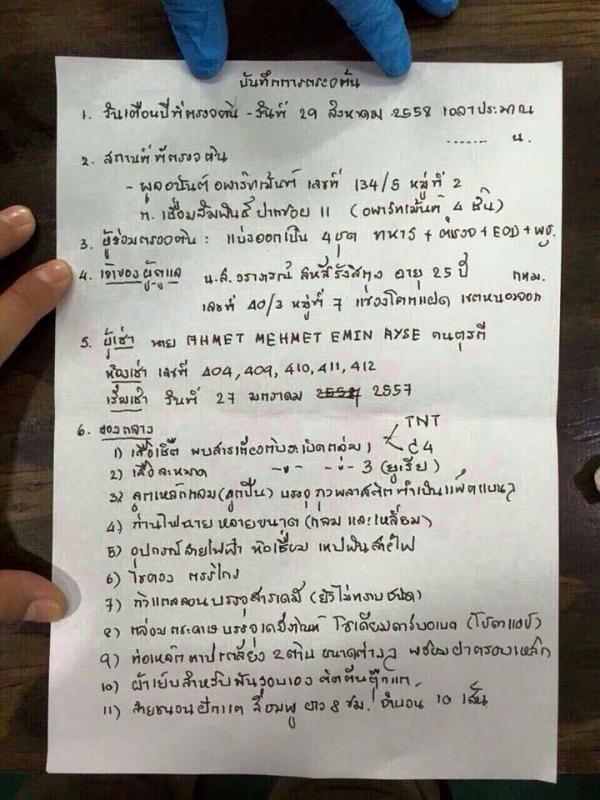 บันทึกการตรวจค้น
1. วันเดือนปีที่ตรวจค้น - วันที่ 29 สิงหาคม 2558 เวลาประมาณ
....... น.
2. สถานที่ที่ตรวจค้น
- พูลอนันต์ อพาร์ทเม้นท์ เลขที่ 134/5 หมู่ที่ 2
ถ. เชื่อมสัมพันธ์ ปากซอย 11 (อพาร์ทเม้นต์ 4 ชั้น)
3. ผู้ร่วมตรวจค้น : แบ่งออกเป็น 4 ชุด ทหาร + ตำรวจ + EOD + พฐ.
4. เจ้าของ ผู้ดูแล น.ส. วราภรณ์ อายุ 25 ปี กทม.
เลขที่ 40/3 หมู่ที่ 7 แขวงโคกแฝด เขตหนองจอก
5. ผู้เช่า นาย AHMET MEHMET EMIN AYSE คนตุรกี
ห้องเช่า เลขที่ 404, 409, 410, 411, 412
เริ่มเช่า วันที่ 27 มกราคม 2557
6. ของกลาง
TNT
1) เสื้อเชิ้ต พบสารเกี่ยวกับระเบิดกลุ่ม 1 C4
2) เสื้อละหมาด -"- -"- 3 (ยูเรีย)
3) ลูกเหล็กกลม (ลูกปืน) บรรจุถุงพลาสติกทำเป็นแพ็ตแบนๆ
4) ถ่านไฟฉาย หลายขนาด (กลม และเหลี่ยม)
5) อุปกรณ์สายไฟฟ้า หัวเชื่อม เทปพันสายไฟ
6) ไขควง กรรไกร
7) กิวแกลลอนบรรจุสารเคมี (ยังไม่ทราบชนิด)
8) กล่องกระดาษบรรจุเคมีภัณฑ์ โซเดียมคาร์บอเนต (โซดาแอช)
9) ท่อเหล็ก 2 ด้าน ขนาดต่างๆ พร้อมฝาครอบเหล็ก
10) ผ้าเย็บสำหรับพันรอบเอว ติดตีนตุ๊กแก
11) สายชนวนฝักแค สีชมพู ยาว 8 ซม. จำนวน 10 เส้น